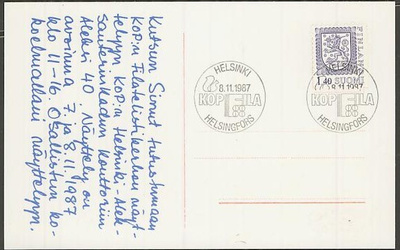 Kutsun Sinut tutustumaan
KOP:n Filatelistikerhon näyt-
telyyn KOP:n Helsinki-Alek-
santerinkadun konttoriin
Aleksi 40 Näyttely on
avoinna 7. ja 8.11.1987
klo 11-16. Osallistun ko-
koelmallani näyttelyyn.
HELSINKI
8.11.1987
KOP FILA
HELSINGFORS
1,40 SUOMI
8.11.1987
KOP FILA
HELSINGFORS